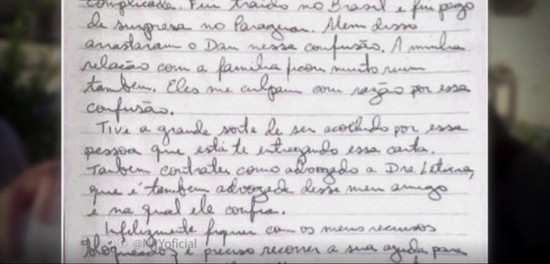 complicada. Fui traído no Brasil e fui pego
de surpresa no Paraguai. Além disso
arrastaram o Dan nessa confusão. A minha
relação com a família ficou muito ruim
também. Eles me culpam com razão por essa
confusão.
Tive a grande sorte de ser acolhido por essa
pessoa que está te entregando essa carta.
Também contratei como advogado a Dra Letícia,
que é também advogada desse meu amigo
e na qual ele confia.
Infelizmente fiquei com os meus recursos
bloqueados e preciso recorrer a sua ajuda para